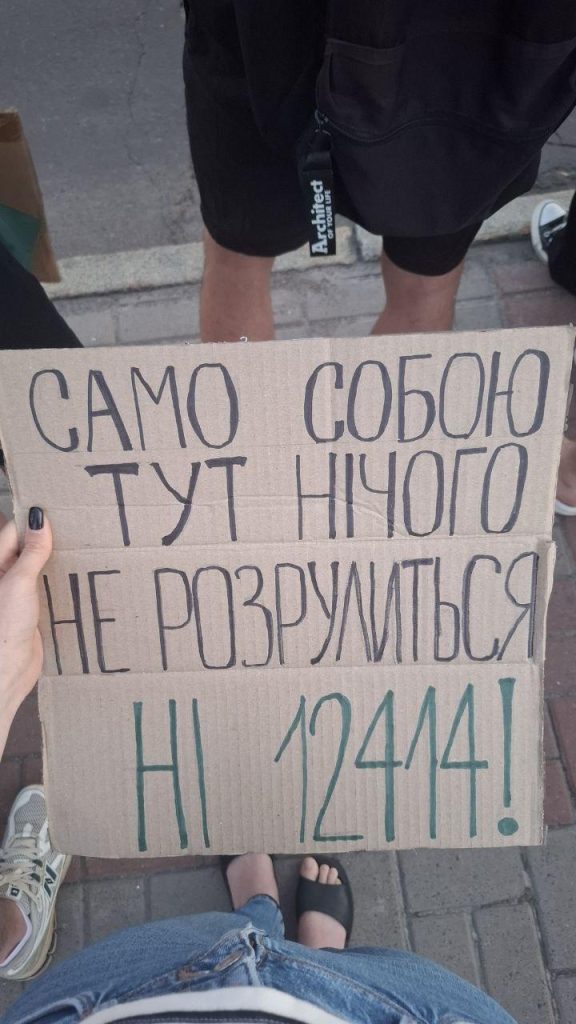 Architect
OF YOUR LIFE
САМО СОБОЮ
ТУТ НІЧОГО
НЕ РОЗРУЛИТЬСЯ
НІ 12414!
N